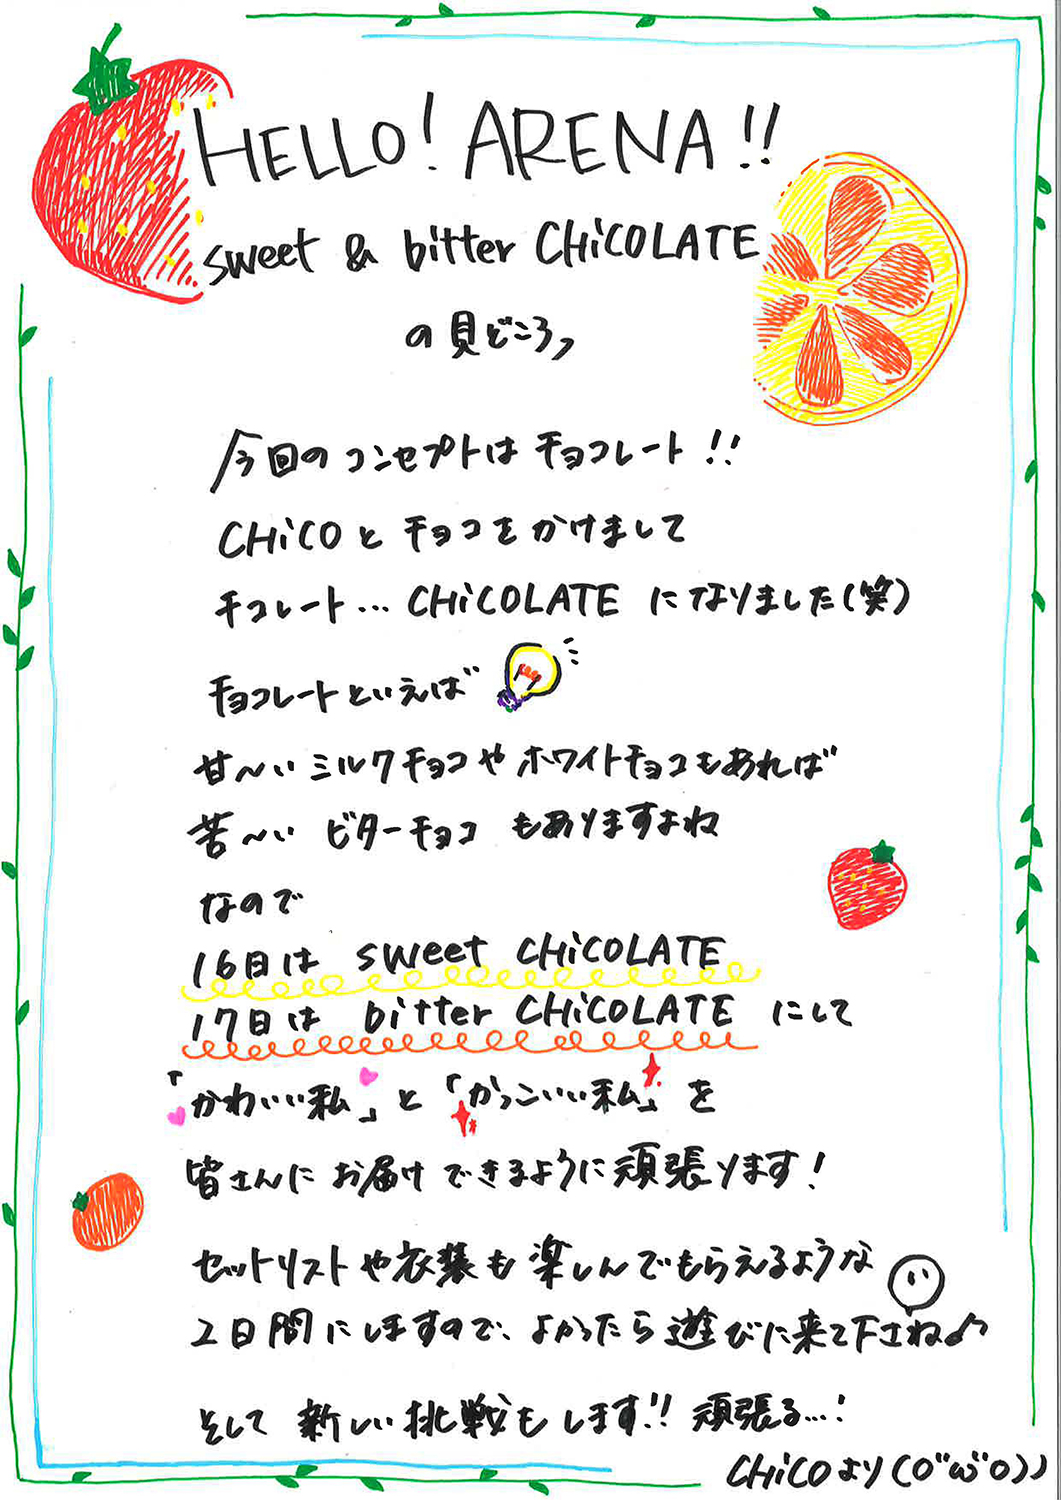 HELLO! ARENA!!
sweet & bitter CHiCOLATE
の見どころ♪
今回のコンセプトはチョコレート!!
CHiCOとチョコをかけまして
チコレート… CHiCOLATEになりました(笑)
チョコレートといえば
甘〜いミルクチョコやホワイトチョコもあれば
苦〜いビターチョコもありますよね
なので
16日は sweet CHiCOLATE
17日は bitter CHiCOLATE にして
「かわいい私」と「かっこいい私」を
皆さんにお届けできるように頑張ります!
セットリストや衣装も楽しんでもらえるような
2日間にしますので、よかったら遊びに来て下さいね♪
そして新しい挑戦もします!!頑張る…!
CHiCOより(o"ω"o))